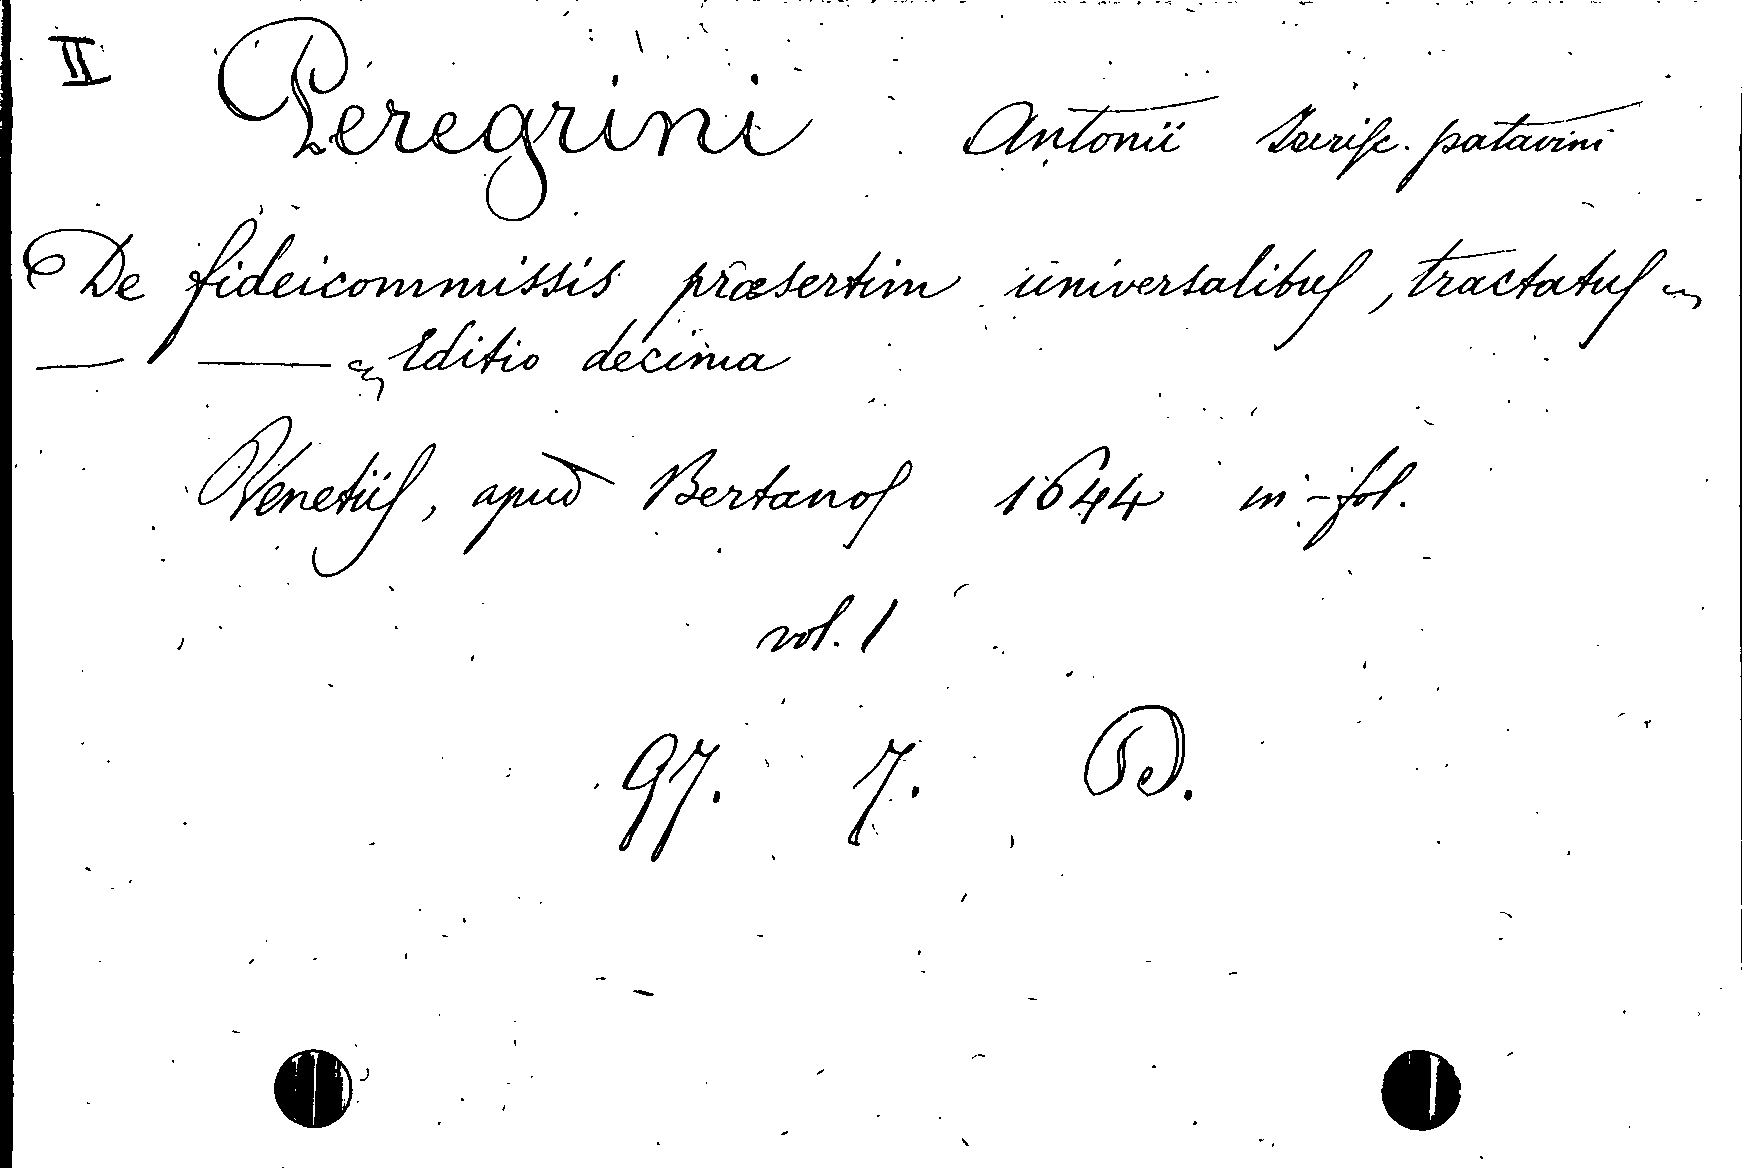 II Peregrini Antonii Jurisc. patavini
De fideicommissis præsertim universalibus, tractatus
— — Editio decima
Venetiis, apud Bertanos 1644 in-fol.
vol. 1
97. 7. D.